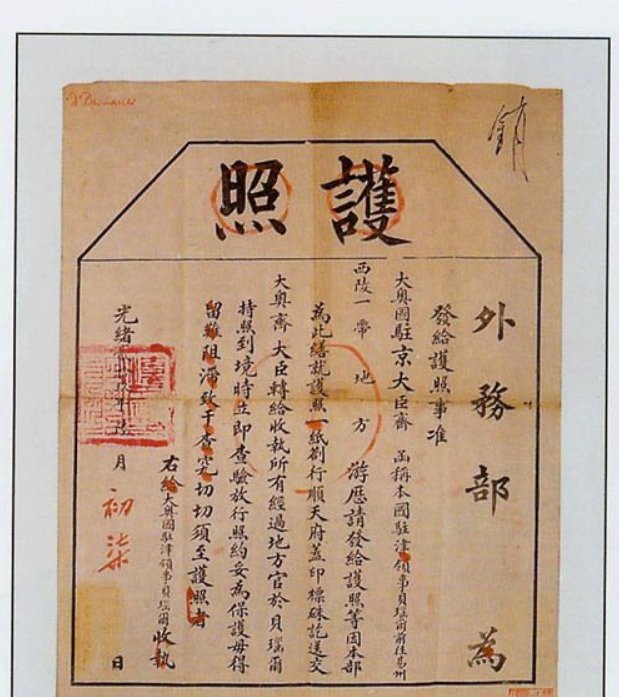 Dr Bernauer
銷
護照
外務部 為
發給護照事准
大奧國駐京大臣齋 函稱本國駐津領事貝瑙爾前往易州
西陵一帶地方 游歷請發給護照等因本部
為此繕就護照一紙劄行順天府蓋印標硃訖送交
大奧齋大臣轉給收執所有經過地方官於貝瑙爾
持照到境時立即查驗放行照約妥為保護毋得
留難阻滯致干查究切切須至護照者
右給大奧國駐津領事貝瑙爾收執
光緒 年 月初柒日